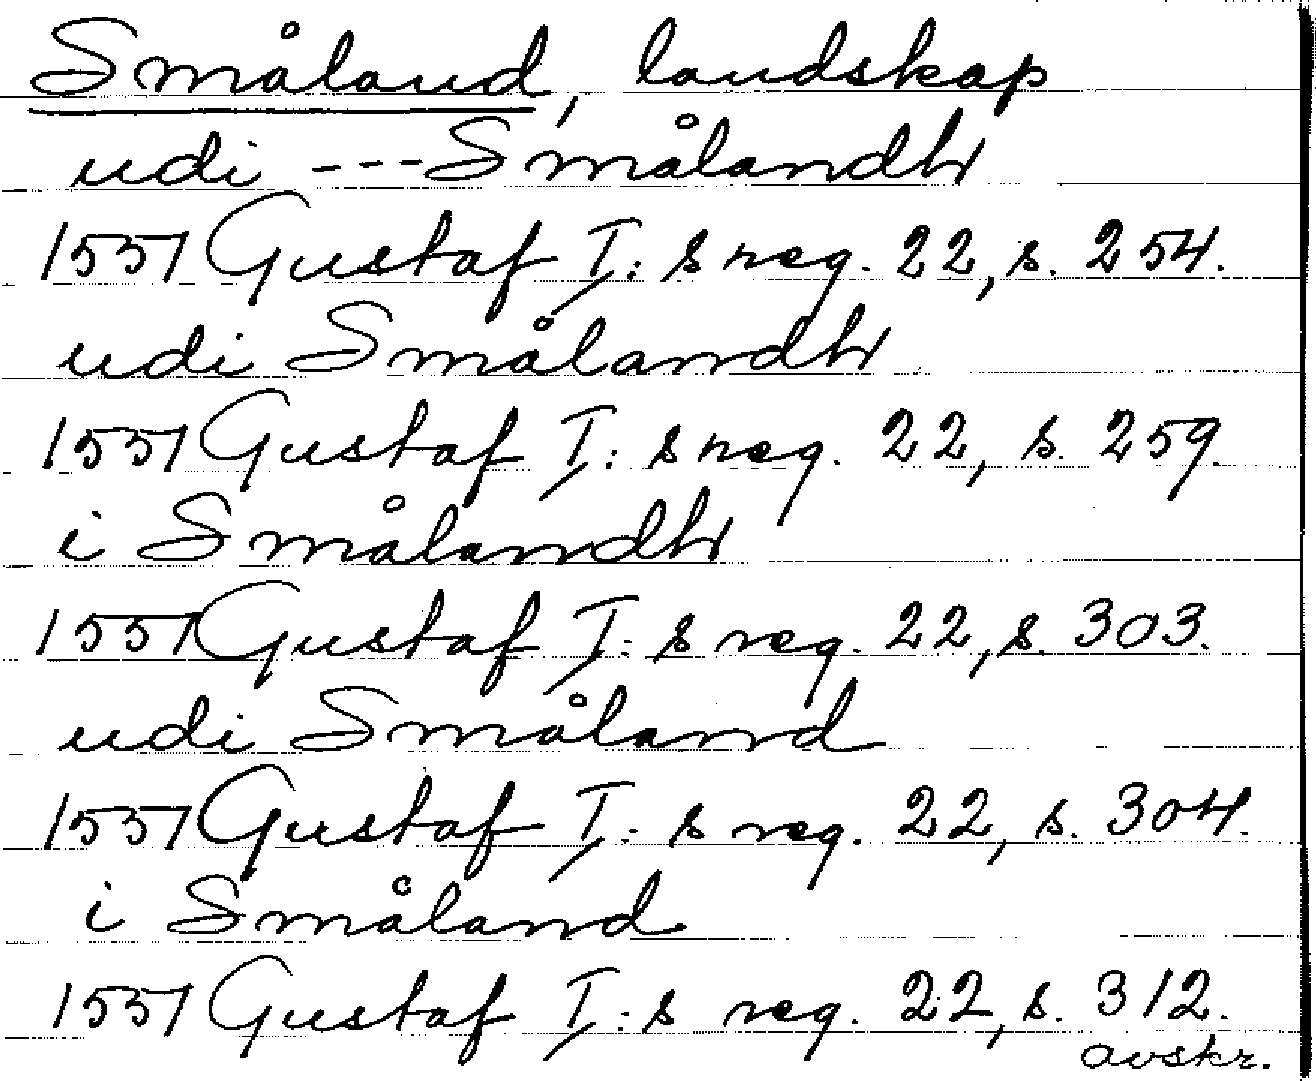 Småland, landskap
udi --- Smålandh
1551 Gustaf I:s reg. 22, s. 254.
udi Smålandh
1551 Gustaf I:s reg. 22, s. 259.
i Smålandh
1551 Gustaf I:s reg. 22, s. 303.
udi Småland
1551 Gustaf I:s reg. 22, s. 304.
i Småland
1551 Gustaf I:s reg. 22, s. 312.
avskr.